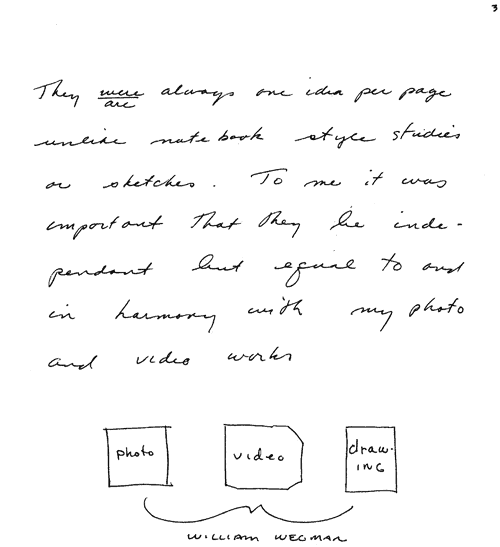 3
They were always one idea per page
are
unlike notebook style studies
or sketches. To me it was
important that they be inde-
pendant but equal to and
in harmony with my photo
and video works
photo video draw-
ING
WILLIAM WEGMAN